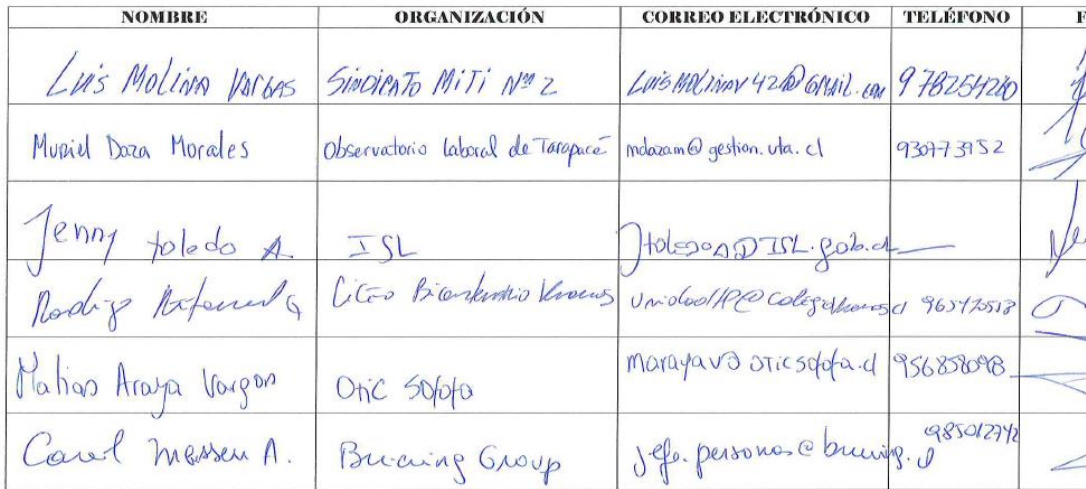 NOMBRE ORGANIZACIÓN CORREO ELECTRÓNICO TELÉFONO F
Luis MOLINA VARGAS SINDICATO MiTi Nº 2 LUISMOLINAV42@GMAIL.COM 978254260
Muriel Daza Morales Observatorio Laboral de Tarapacá mdazam@gestion.uta.cl 930773952
Jenny toledo A. ISL Jtoledoa@ISL.gob.cl
Rodrigo Liceo Bicentenario
Matias Araya Vargas Otic Sofofa marayav@oticsofofa.cl
Carol Massen A. Group 985012742